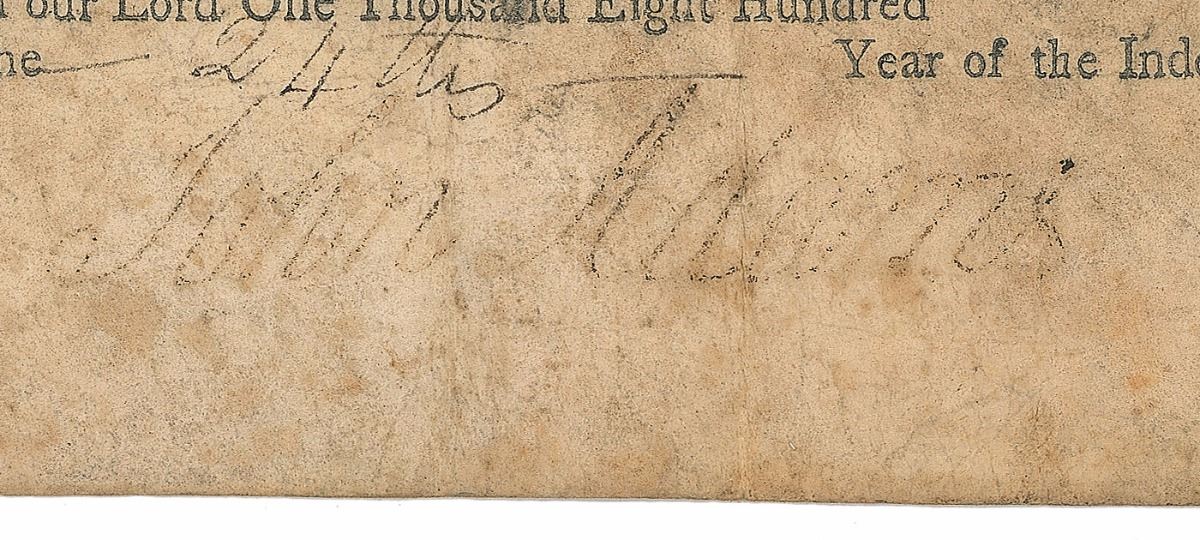 our Lord One Thousand Eight Hundred
he 24th Year of the Inde
John Adams